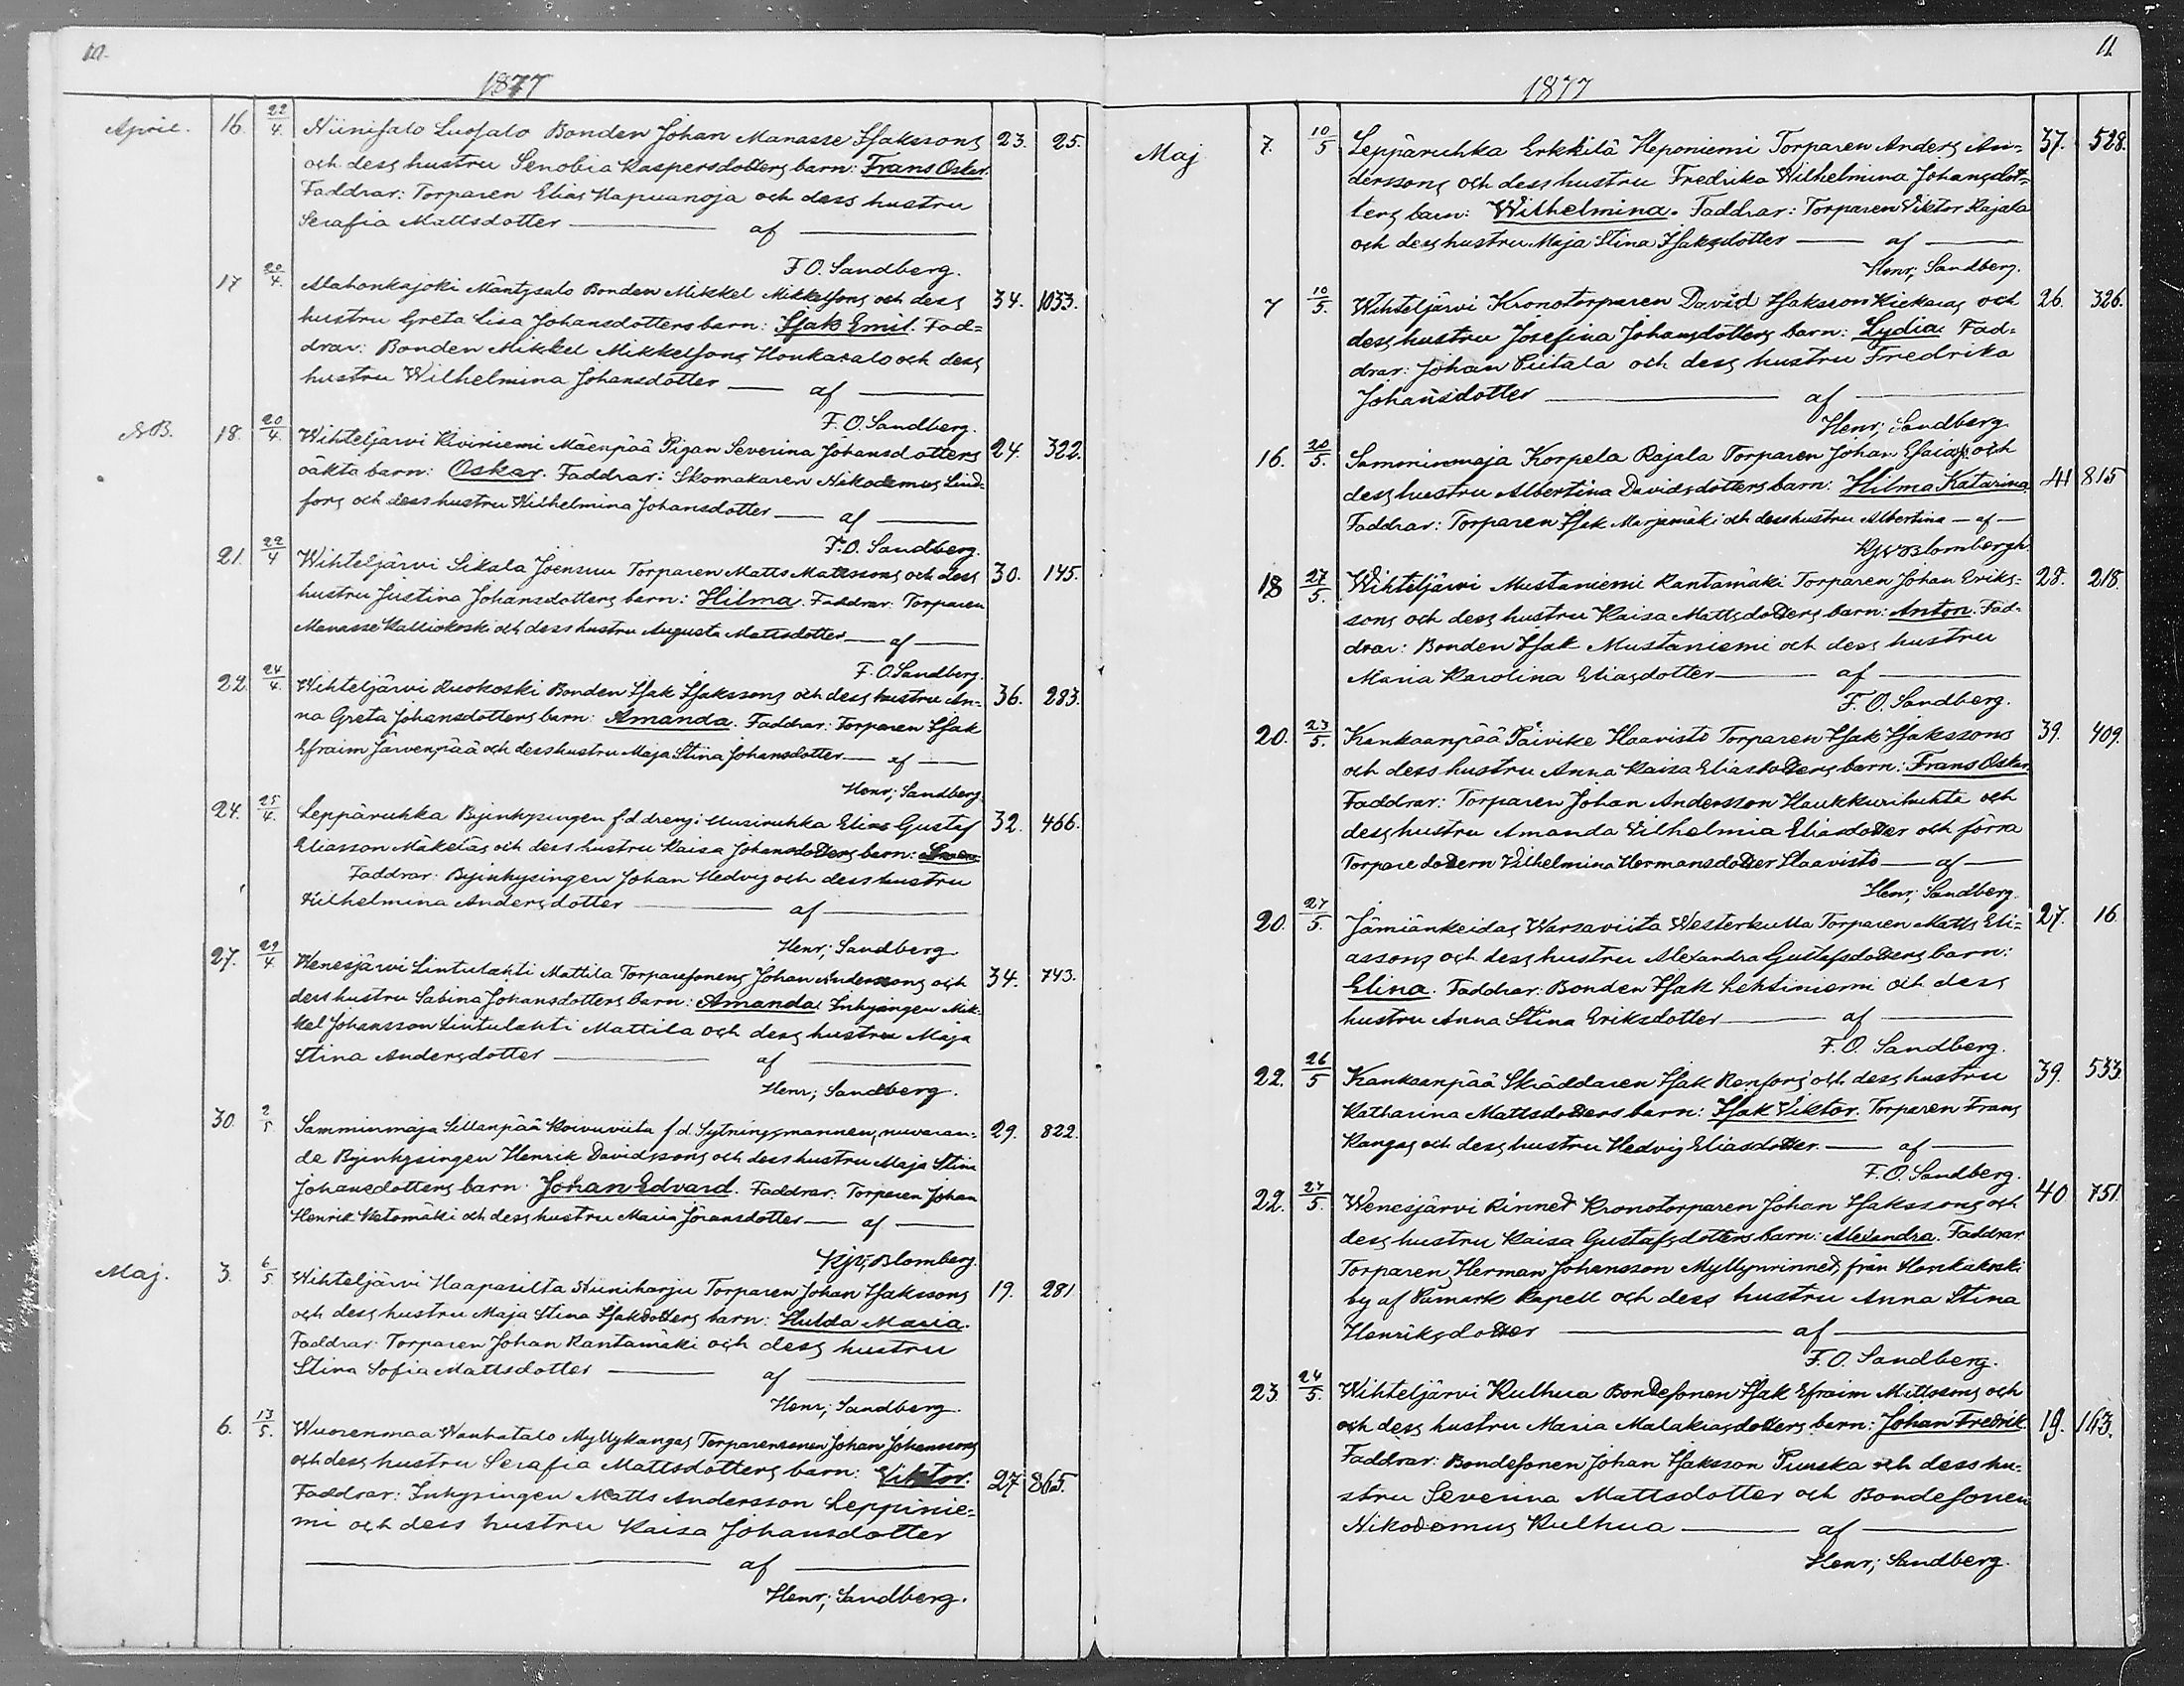 10.
1877
April. 16. 22/4. Niinisalo Luosalo Bonden Johan Manasse Isakssons 23. 25.
och dess hustru Senobia Kaspersdotters barn: Frans Oskar.
Faddrar: Torparen Elias Hapuanoja och dess hustru
Serafia Mattsdotter — af —
F. O. Sandberg.
17 20/4. Alahonkajoki Mäntysalo Bonden Mikkel Mikkelsons och dess 34. 1033.
hustru Greta Lisa Johansdotters barn: Isak Emil. Fad=
drar: Bonden Mikkel Mikkelsons Honkasalo och dess
hustru Wilhelmina Johansdotter — af —
F. O. Sandberg.
NB. 18. 20/4. Wihteljärvi Kiviniemi Mäenpää Pigan Severina Johansdotters 24. 322.
oäkta barn: Oskar. Faddrar: Skomakaren Nikodemus Lind=
fors och dess hustru Wilhelmina Johansdotter — af —
F. O. Sandberg.
21. 22/4 Wihteljärvi Sikala Joensuu Torparen Matts Mattssons och dess 30. 145.
hustru Justina Johansdotters barn: Hilma. Faddrar: Torparen
Manasse Kalliokoski och dess hustru Augusta Mattsdotter — af —
F. O. Sandberg.
22. 24/4. Wihteljärvi Ruokoski Bonden Isak Isakssons och dess hustru An= 36. 283.
na Greta Johansdotters barn: Amanda. Faddrar: Torparen Isak
Efraim Järvenpää och dess hustru Maja Stina Johansdotter — af —
Henr; Sandberg.
24. 25/4. Leppäruhka Byinhysingen f.d. dreng i Uusiruhka Elias Gustaf 32. 466.
Eliasson Mäkeläs och dess hustru Kaisa Johansdotters barn:
Faddrar: Byinhysingen Johan Hedvig och dess hustru
Vilhelmina Andersdotter — af —
Henr; Sandberg
27. 29/4. Wenesjärvi Lintulahti Mattila Torparesonens Johan Anderssons och 34. 743.
dess hustru Sabina Johansdotters barn: Amanda. Inhysingen Mik=
kel Johansson Lintulahti Mattila och dess hustru Maja
Stina Andersdotter — af —
Henr; Sandberg.
30. 2/5. Samminmaja Sillanpää Koivuviita f.d. Sytningsmannen, nuvaran= 29. 822.
de Byinhysingen Henrik Davidssons och dess hustru Maja Stina
Johansdotters barn: Johan Edvard. Faddrar: Torparen Johan
Henrik Wetomäki och dess hustru Maria Joransdotter — af —
Kjv; Blomberg.
Maj. 3. 6/5. Wihteljärvi Haapasilta Niiniharju Torparen Johan Isakssons 19. 281
och dess hustru Maja Stina Isaksdotters barn: Hulda Maria.
Faddrar: Torparen Johan Rantamäki och dess hustru
Stina Sofia Mattsdotter — af —
Henr; Sandberg.
6. 13/5. Wuorenmaa Wanhatalo Myllykangas Torparensonen Johan Johanssons
och dess hustru Serafia Mattsdotters barn: Viktor. 27 865.
Faddrar: Inhysingen Matts Andersson Leppinie=
mi och dess hustru Kaisa Johansdotter
— af —
Henr; Sandberg.
11
1877
Maj 7. 10/5 Leppäruhka Erkkilä Heponiemi Torparen Anders An= 37. 528.
derssons och dess hustru Fredrika Wilhelmina Johansdot=
ters barn: Wilhelmina. Faddrar: Torparen Viktor Rajala
och dess hustru Maja Stina Isaksdotter — af —
Henr; Sandberg.
7 10/5. Wihteljärvi Kronotorparen David Isaksson Kiekaras och 26. 326.
dess hustru Josefina Johansdotters barn: Lydia. Fad=
drar: Johan Piitala och dess hustru Fredrika
Johansdotter — af —
Henr; Sandberg.
16. 20/5. Samminmaja Korpela Rajala Torparen Johan Esaiass. och
dess hustru Albertina Davidsdotters barn: Hilma Katarina. 41 815
Faddrar: Torparen Isak Marjamäki och dess hustru Albertina — af —
Kjv Blombergh.
18 27/5. Wihteljärvi Mustaniemi Rantamäki Torparen Johan Eriks= 28. 218.
sons och dess hustru Kaisa Mattsdotters barn: Anton. Fad=
drar: Bonden Isak Mustaniemi och dess hustru
Maria Karolina Eliasdotter — af —
F. O. Sandberg.
20. 23/5. Kankaanpää Päivike Haavisto Torparen Isak Isakssons 39. 409.
och dess hustru Anna Kaisa Eliasdotters barn: Frans Oskar.
Faddrar: Torparen Johan Andersson Haukkurihuhta och
dess hustru Amanda Vilhelmia Eliasdotter och förra
Torpare dottern Vilhelmina Hermansdotter Haavisto — af —
Henr; Sandberg.
20. 27/5. Jämiänkeidas Warsaviita Westerkulla Torparen Matts Eli= 27. 16
assons och dess hustru Alexandra Gustafsdotters barn:
Elina. Faddrar: Bonden Isak Lehtiniemi och dess
hustru Anna Stina Eriksdotter — af —
F. O. Sandberg.
22. 26/5 Kankaanpää Skräddaren Isak Renfors och dess hustru 39. 533.
Katharina Mattsdotters barn: Isak Viktor. Torparen Frans
Kangas och dess hustru Hedvig Eliasdotter. — af —
F. O. Sandberg.
22. 27/5. Wenesjärvi Rinned Kronotorparen Johan Isakssons och 40 751.
dess hustru Kaisa Gustafsdotters barn: Alexandra. Faddrar
Torparen Herman Johansson Myllynrinned, från Honkakoski
by af Påmark Kapell och dess hustru Anna Stina
Henriksdotter — af —
F. O. Sandberg.
23. 24/5. Wihteljärvi Kulhua Bondesonen Isak Efraim Mattssons och
och dess hustru Maria Malakiasdotters barn: Johan Fredrik. 19. 163.
Faddrar: Bondesonen Johan Isaksson Puuska och dess hu=
stru Severina Mattsdotter och Bondesonen
Nikodemus Kulhua — af —
Henr; Sandberg.